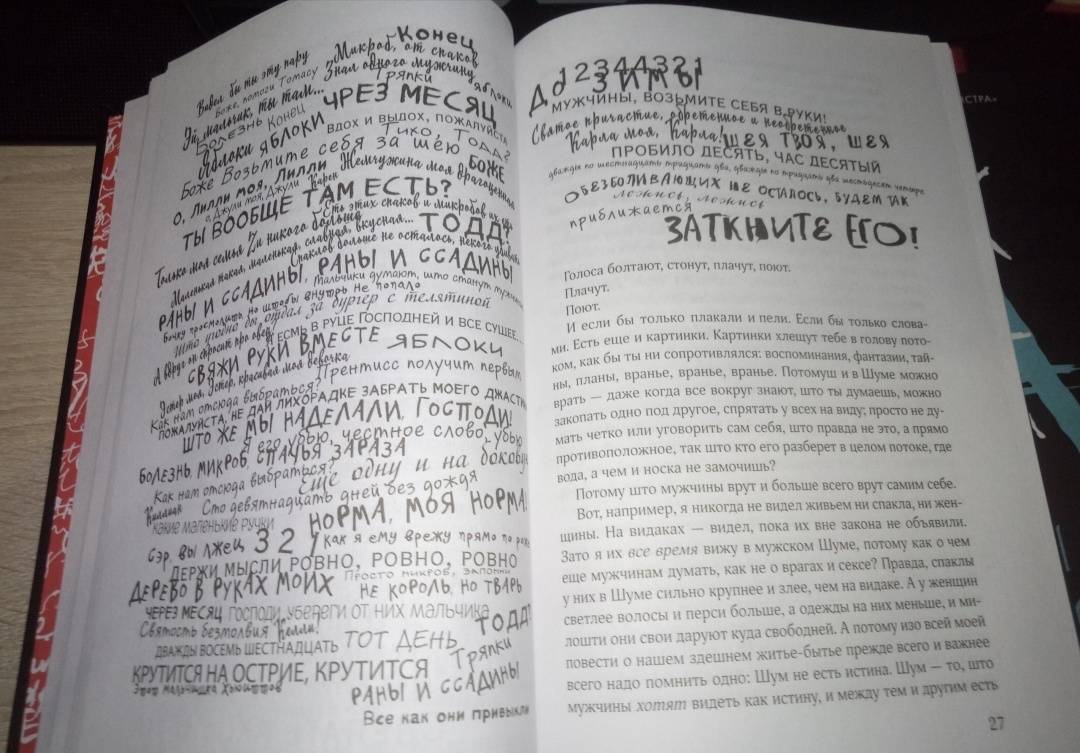 Конец
Видел бы ты эту пару
Микроб, от спаков
Боже, помоги Томасу
Знал одного мужчину
Эй, мальчик, ты там...
Тряпки
яблоки
Болезнь Конец
ЧРЕЗ МЕСЯЦ
Яблоки ЯБЛОКИ
вдох и выдох, пожалуйста
Тихо, Тодд?
Боже Возьмите себя за шею БОЖЕ
О, Лилли моя, Лилли
Желмчужина моя драгоценная
о Джули моя, Джули Карен
ТЫ ВООБЩЕ ТАМ ЕСТЬ?
Есть этих спаков и микробов их
Только моя семья 2и никого больше
ТОДД!
Маленькая такая, маленькая, славная, вкусная...
Спаклов больше не осталось, некого убивать
РАНЫ И ССАДИНЫ, РАНЫ И ССАДИНЫ
Мальчики думают, што станут
што внутрь не попало
Што угодно бы отдал за бургер с телятиной
А вдруг он спросит про овец
Я ЕСМЬ В РУЦЕ ГОСПОДНЕЙ И ВСЕ СУЩЕЕ...
СВЯЖИ РУКИ ВМЕСТЕ ЯБЛОКИ
Эстер моя, Эстер, красивая моя девочка
Прентисс получит первым
Как нам отсюда выбраться?
ПОЖАЛУЙСТА, НЕ ДАЙ ЛИХОРАДКЕ ЗАБРАТЬ МОЕГО ДЖАСТИ
ШТО ЖЕ МЫ НАДЕЛАЛИ, ГОСПОДИ!
Я его убью, честное слово, убью
БОЛЕЗНЬ, МИКРОБ, СПАЧЬЯ ЗАРАЗА
ЕЩЕ одну и на боковую
Как нам отсюда выбраться?
Сто девятнадцать дней без дождя
какие маленькие ручки
НОРМА, МОЯ НОРМА!
Сэр, вы лжец 3 2 1 как я ему врежу прямо по
ДЕРЖИ МЫСЛИ РОВНО, РОВНО, РОВНО
Просто микроб, запомни
ДЕРЕВО В РУКАХ МОИХ НЕ КОРОЛЬ, НО ТВАРЬ
ЧЕРЕЗ МЕСЯЦ ГОСПОДИ, УБЕРЕГИ ОТ НИХ МАЛЬЧИКА
Святость безмолвия Келли!
ТОДД?
ДВАЖДЫ ВОСЕМЬ ШЕСТНАДЦАТЬ ТОТ ДЕНЬ
Тряпки
КРУТИТСЯ НА ОСТРИЕ, КРУТИТСЯ
Этот мальчишка Хьюиттов
РАНЫ И ССАДИНЫ
Все как они привыкли
12344321
До ЗИМЫ
МУЖЧИНЫ, ВОЗЬМИТЕ СЕБЯ В РУКИ!
Святое причастие, обретенное и необретенное
Карла моя, Карла! ШЕЯ ТВОЯ, ШЕЯ
ПРОБИЛО ДЕСЯТЬ, ЧАС ДЕСЯТЫЙ
дважды по шестнадцать тридцать два, дважды по тридцать два шестьдесят четыре
ОБЕЗБОЛИВАЮЩИХ НЕ ОСТАЛОСЬ, БУДЕМ ТАК
ложись, ложись
приближается
ЗАТКНИТЕ ЕГО!
Голоса болтают, стонут, плачут, поют.
Плачут.
Поют.
И если бы только плакали и пели. Если бы только слова-
ми. Есть еще и картинки. Картинки хлещут тебе в голову пото-
ком, как бы ты ни сопротивлялся: воспоминания, фантазии, тай-
ны, планы, вранье, вранье, вранье. Потомуш и в Шуме можно
врать — даже когда все вокруг знают, што ты думаешь, можно
закопать одно под другое, спрятать у всех на виду; просто не ду-
мать четко или уговорить сам себя, што правда не это, а прямо
противоположное, так што кто его разберет в целом потоке, где
вода, а чем и носка не замочишь?
Потому што мужчины врут и больше всего врут самим себе.
Вот, например, я никогда не видел живьем ни спакла, ни жен-
щины. На видаках — видел, пока их вне закона не объявили.
Зато я их все время вижу в мужском Шуме, потому как о чем
еще мужчинам думать, как не о врагах и сексе? Правда, спаклы
у них в Шуме сильно крупнее и злее, чем на видаке. А у женщин
светлее волосы и перси больше, а одежды на них меньше, и ми-
лошти они свои даруют куда свободней. А потому изо всей моей
повести о нашем здешнем житье-бытье прежде всего и важнее
всего надо помнить одно: Шум не есть истина. Шум — то, што
мужчины хотят видеть как истину, и между тем и другим есть
27